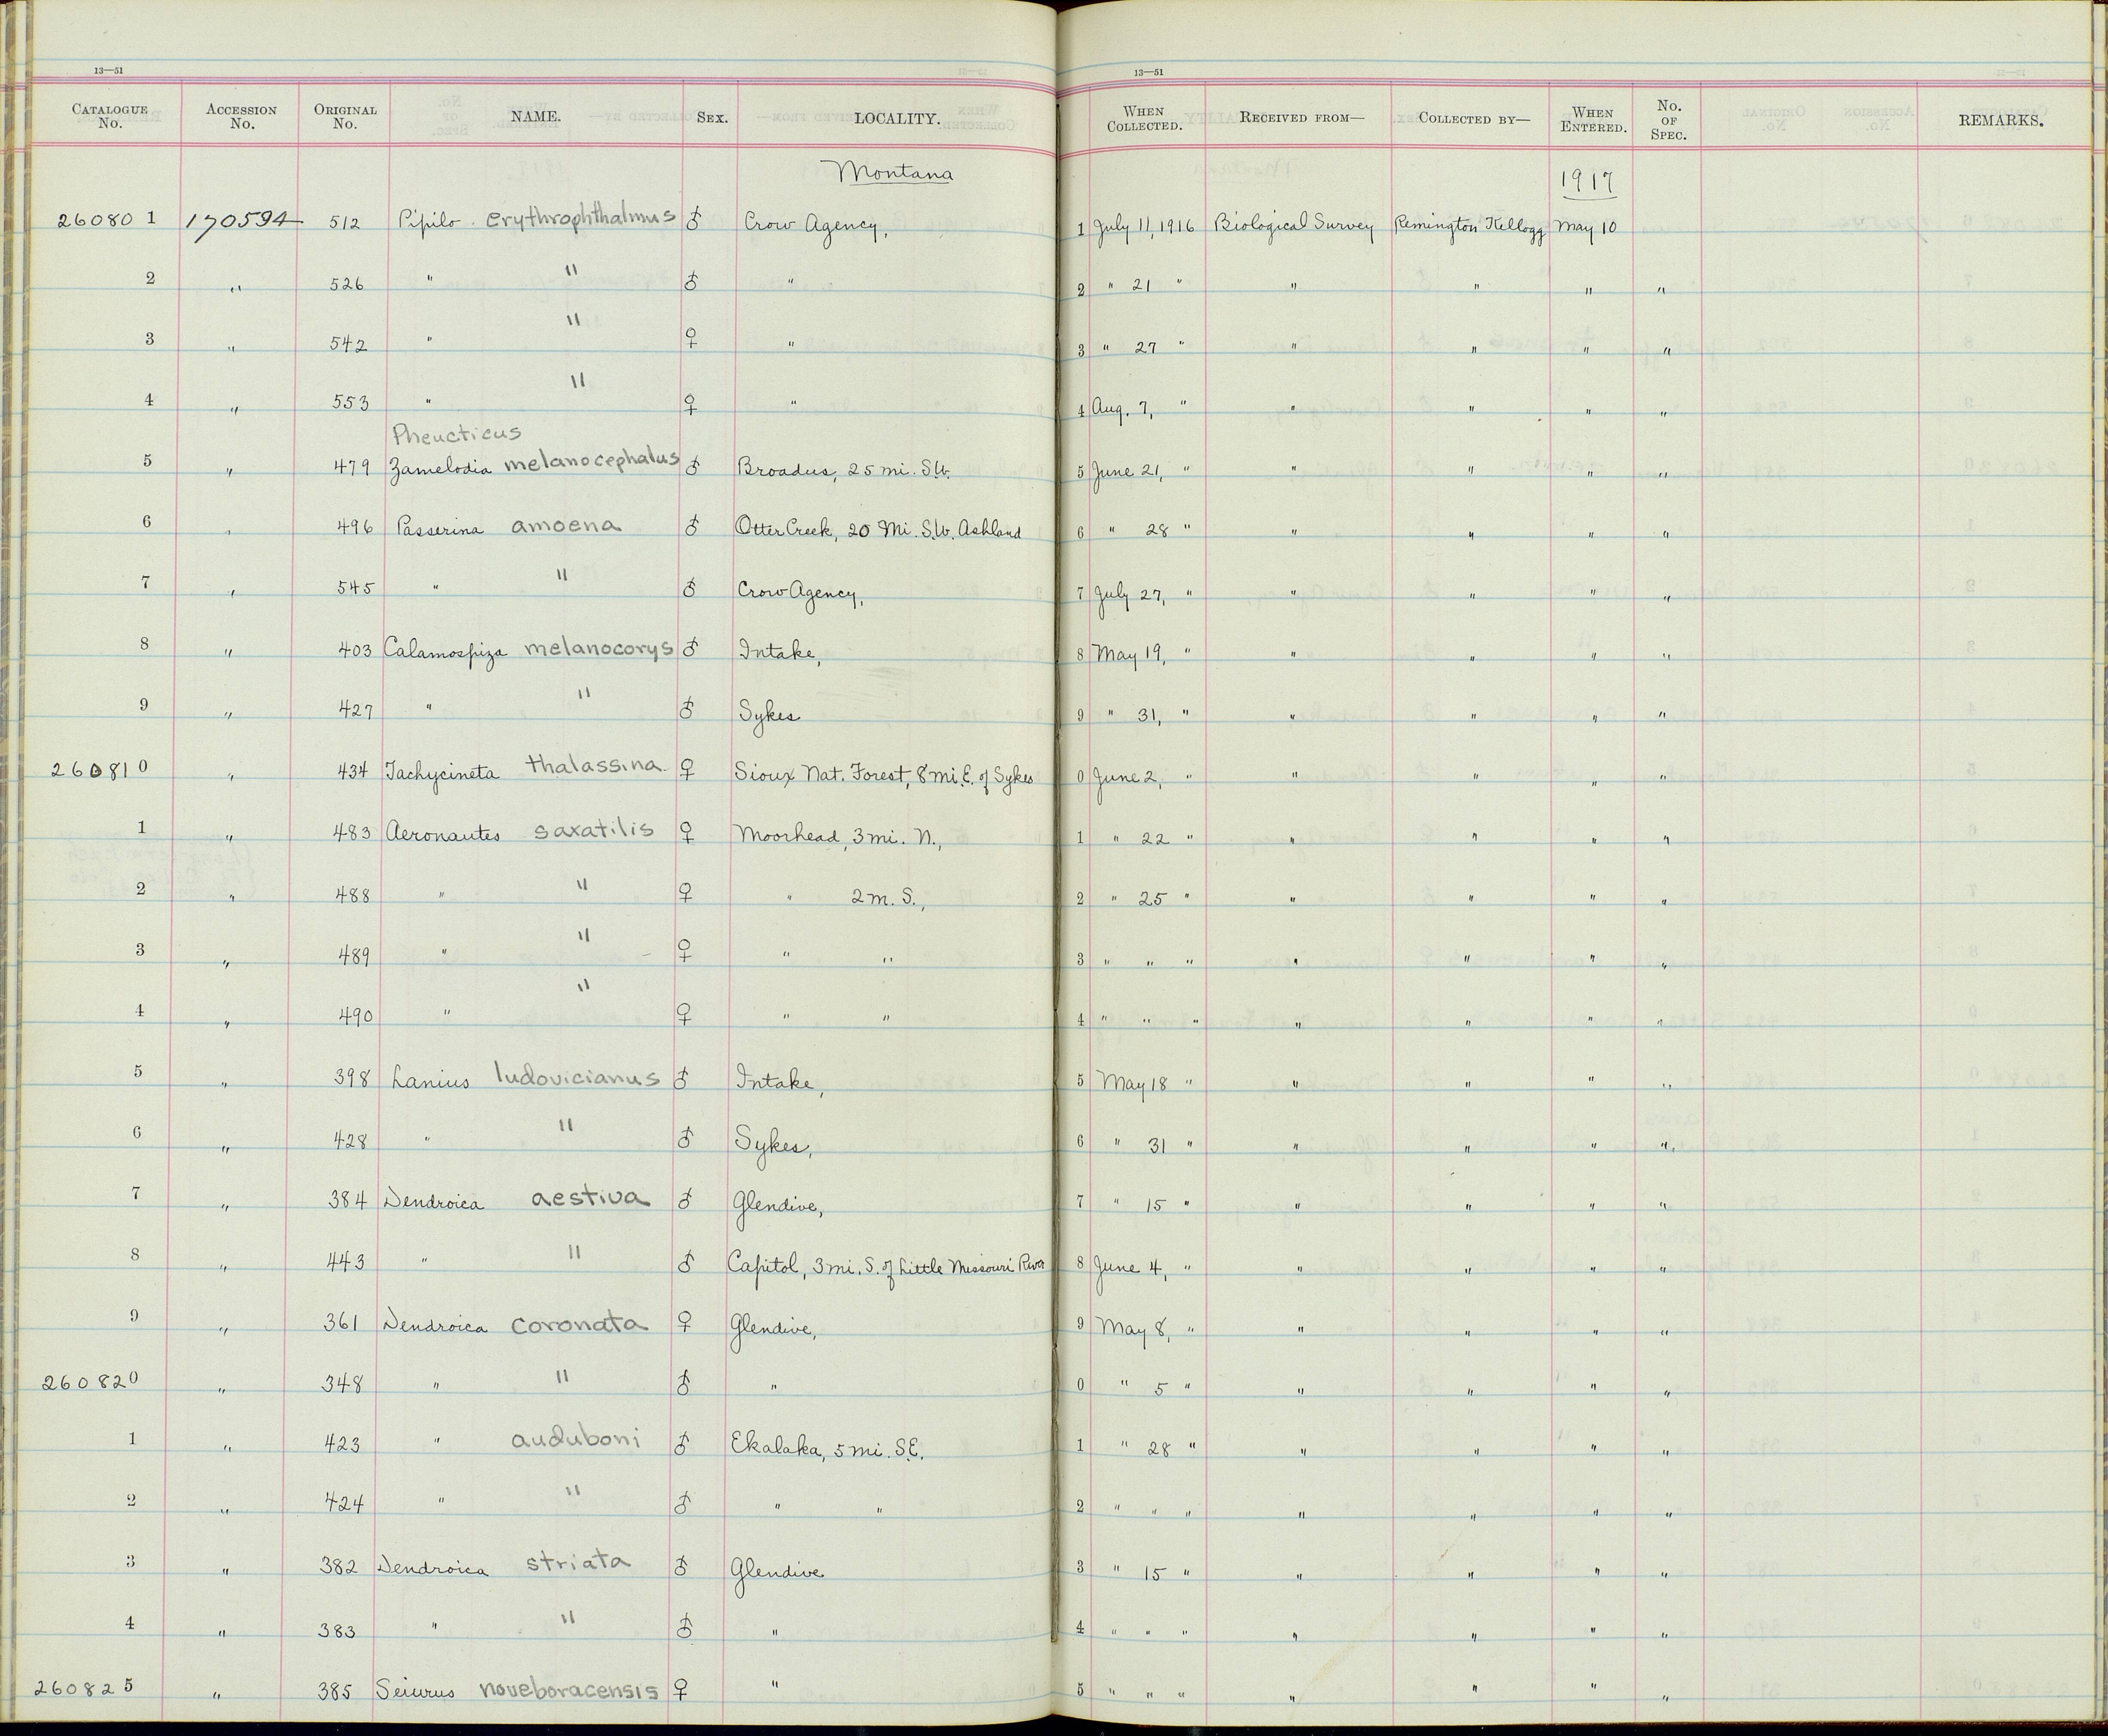 13—51 13—51
CATALOGUE No. ACCESSION No. ORIGINAL No. NAME. SEX. LOCALITY. WHEN COLLECTED. RECEIVED FROM— COLLECTED BY— WHEN ENTERED. No. OF SPEC. REMARKS.
Montana 1917
260801 170594 512 Pipilo erythrophthalmus ♂ Crow Agency, 1 July 11, 1916 Biological Survey Remington Kellogg May 10
2 " 526 " " ♂ " 2 " 21 " " " " "
3 " 542 " " ♀ " 3 " 27 " " " " "
4 " 553 " " ♀ " 4 Aug. 7, " " " " "
Pheucticus
5 " 479 Zamelodia melanocephalus ♂ Broadus, 25 mi. S.W. 5 June 21, " " " " "
6 " 496 Passerina amoena ♂ Otter Creek, 20 Mi. S.W. Ashland 6 " 28 " " " " "
7 " 545 " " ♂ Crow Agency, 7 July 27, " " " " "
8 " 403 Calamospiza melanocorys ♂ Intake, 8 May 19, " " " " "
9 " 427 " " ♂ Sykes 9 " 31, " " " " "
260810 " 434 Tachycineta thalassina ♀ Sioux Nat. Forest, 8 mi. E. of Sykes 0 June 2, " " " " "
1 " 483 Aeronautes saxatilis ♀ Moorhead, 3 mi. N., 1 " 22 " " " " "
2 " 488 " " ♀ " 2 m. S., 2 " 25 " " " " "
3 " 489 " " ♀ " " 3 " " " " " " "
4 " 490 " " ♀ " " 4 " " " " " " "
5 " 398 Lanius ludovicianus ♂ Intake, 5 May 18 " " " " "
6 " 428 " " ♂ Sykes, 6 " 31 " " " " "
7 " 384 Dendroica aestiva ♂ Glendive, 7 " 15 " " " " "
8 " 443 " " ♂ Capitol, 3 mi. S. of Little Missouri River 8 June 4, " " " " "
9 " 361 Dendroica coronata ♀ Glendive, 9 May 8, " " " " "
260820 " 348 " " ♂ " 0 " 5 " " " " "
1 " 423 " auduboni ♂ Ekalaka, 5 mi. S.E. 1 " 28 " " " " "
2 " 424 " " ♂ " " 2 " " " " " " "
3 " 382 Dendroica striata ♂ Glendive 3 " 15 " " " " "
4 " 383 " " ♂ " 4 " " " " " " "
260825 " 385 Seiurus noveboracensis ♀ " 5 " " " " " " "